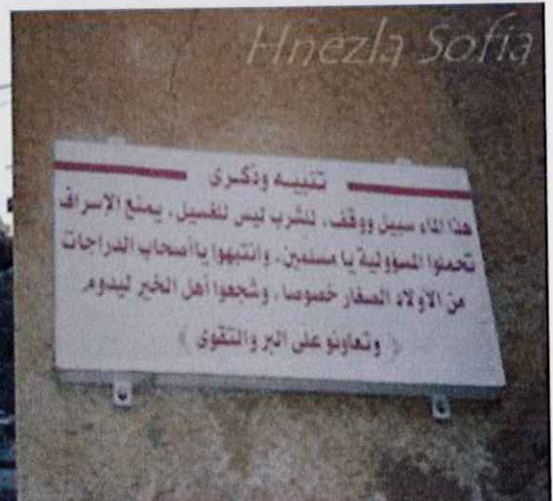 Hnezla Sofia
تنبيه وذكرى
هذا الماء سبيل ووقف، للشرب ليس للغسيل، يمنع الإسراف
تحملوا المسؤولية يا مسلمين، وانتبهوا يا أصحاب الدراجات
من الأولاد الصغار خصوصا، وشجعوا أهل الخير ليدوم
﴿ وتعاونو على البر والتقوى ﴾